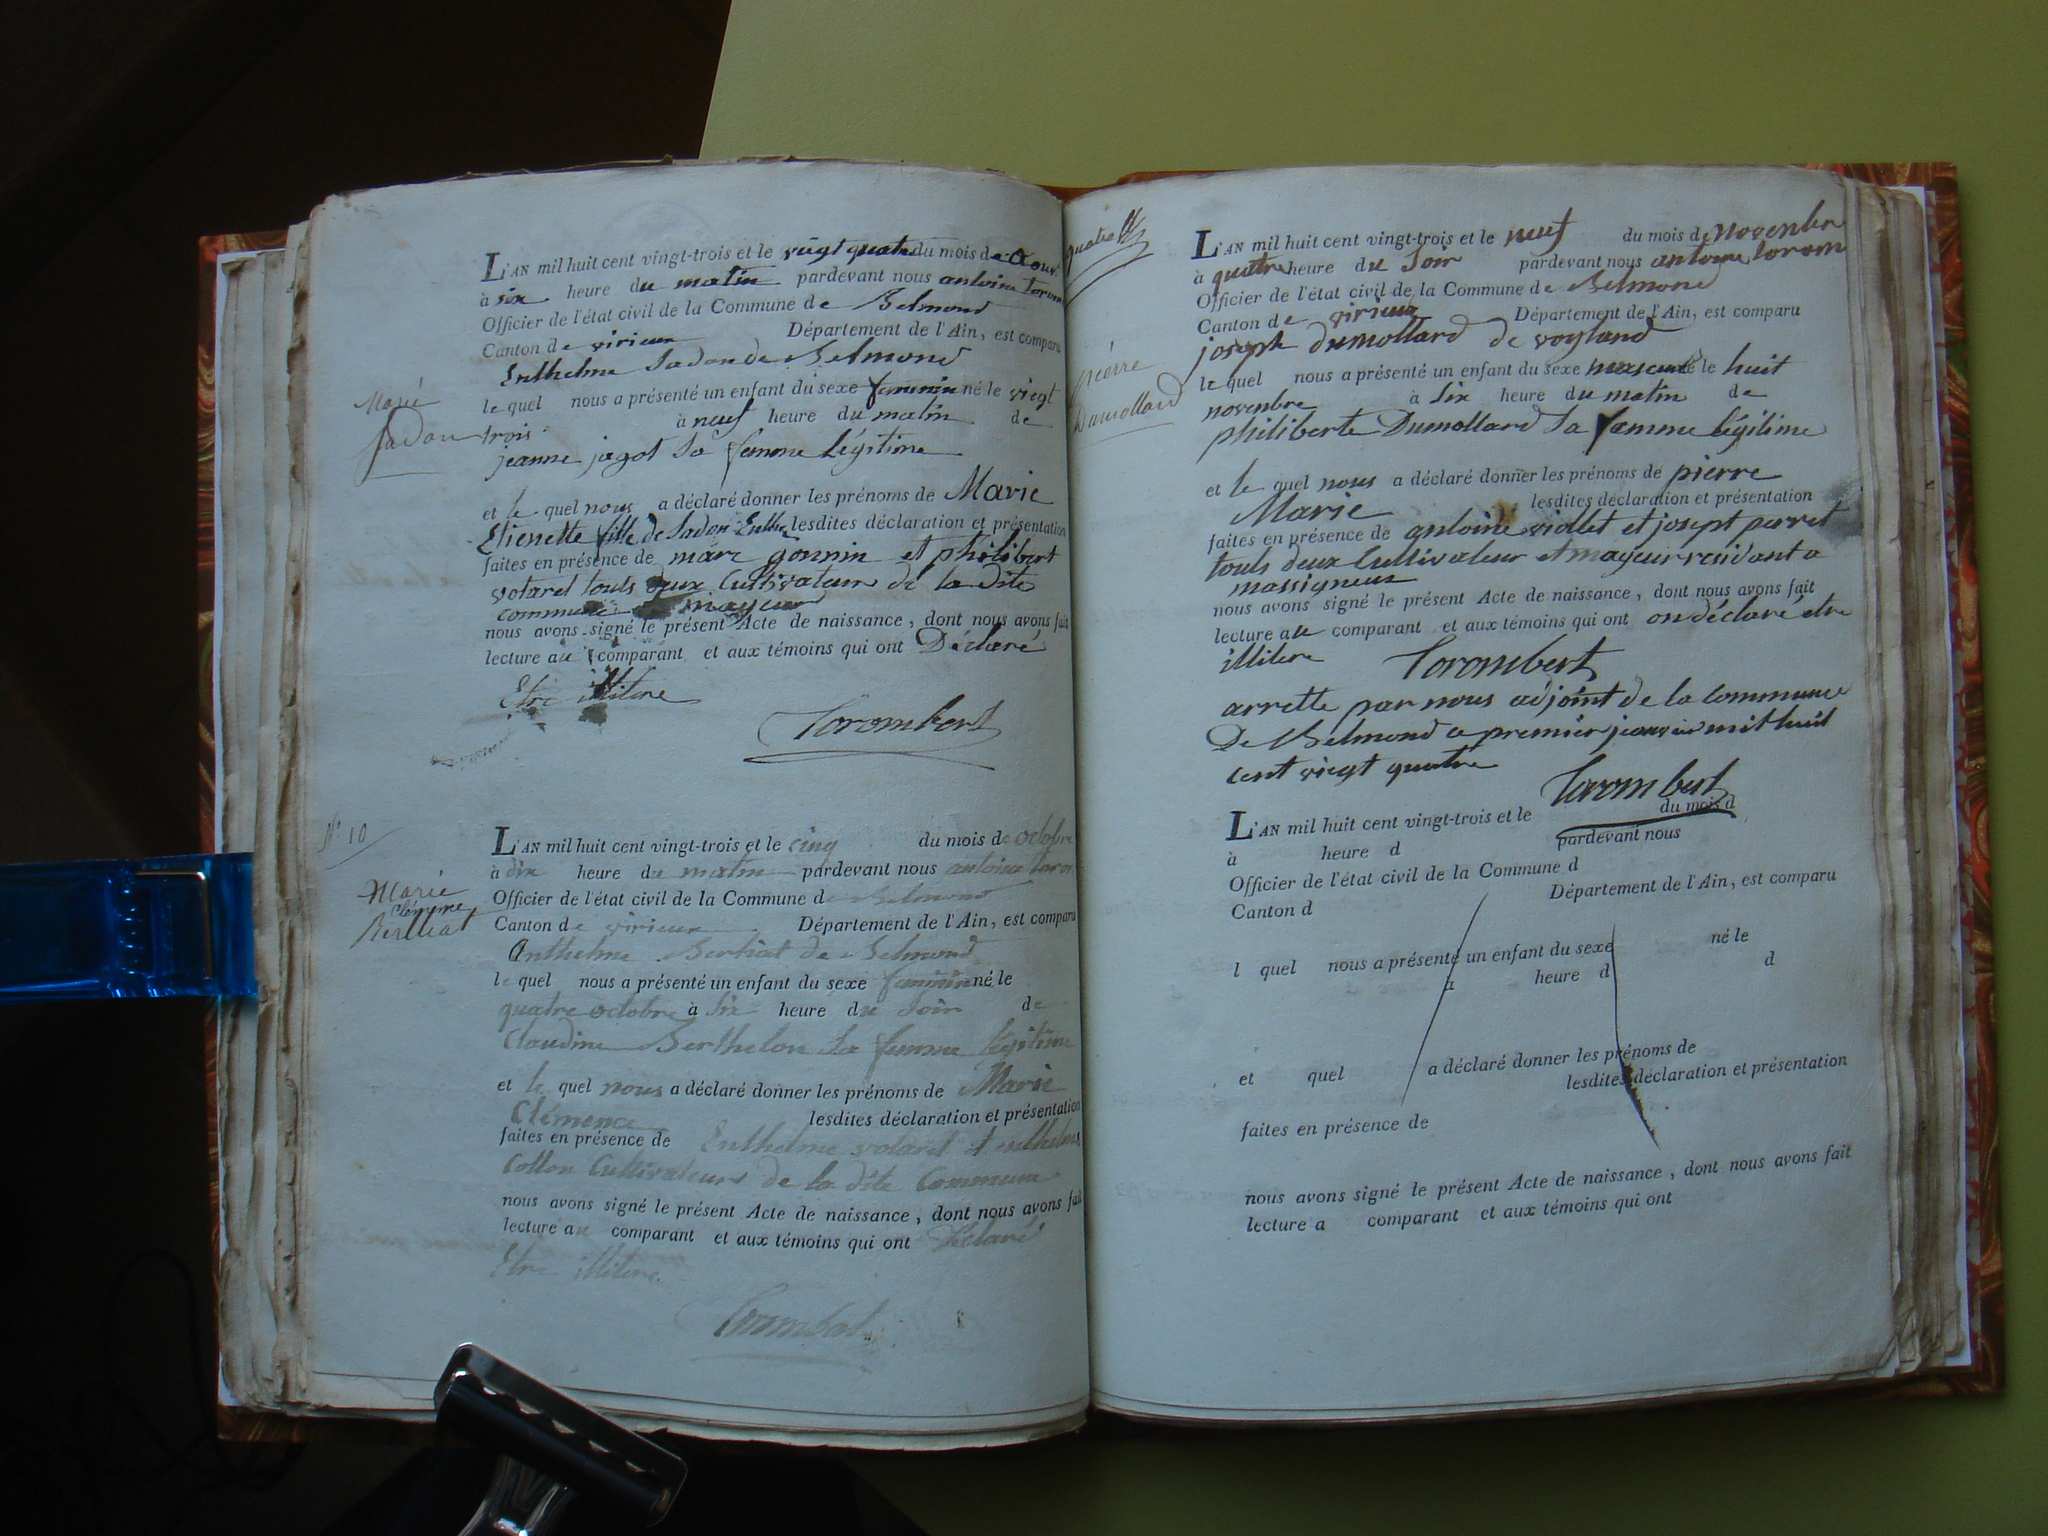 L'AN mil huit cent vingt-trois et le vingt quatre du mois de Aout
à six heure du matin pardevant nous antoine torom
Officier de l'état civil de la Commune de Belmond
Canton de virieux Département de l'Ain, est comparu
Enthelme Sadon de Belmond
le quel nous a présenté un enfant du sexe feminin né le viegt
trois à neuf heure du matin de
jeanne jagot Sa femme légitime
et le quel nous a déclaré donner les prénoms de Marie
Etienette fille de Sadon Enthe lesdites déclaration et présentation
faites en présence de marc gonnin et philibert
votaret touls deux Cultivateur de la dite
commune mayeur
nous avons signé le présent Acte de naissance, dont nous avons fait
lecture au comparant et aux témoins qui ont Déclaré
Etre illitere
Torombert
Marie
Sadon
N° 10
Marie
Clémence
Bertiat
L'AN mil huit cent vingt-trois et le cinq du mois de octobre
à dix heure du matin pardevant nous antoine torom
Officier de l'état civil de la Commune d Belmond
Canton de virieux Département de l'Ain, est comparu
Anthelme Bertiat de Belmond
le quel nous a présenté un enfant du sexe feminin né le
quatre octobre à Six heure du Soir de
Claudine Berthelon Sa femme légitime
et le quel nous a déclaré donner les prénoms de Marie
Clémence lesdites déclaration et présentation
faites en présence de Enthelme votaret et enthelme
Cotton Cultivateurs de la dite Commune
nous avons signé le présent Acte de naissance, dont nous avons fait
lecture au comparant et aux témoins qui ont Déclaré
Etre illitere
Torombert
pierre
Dumollard
L'AN mil huit cent vingt-trois et le neuf du mois de Novenbre
à quatre heure du Soir pardevant nous antoine torom
Officier de l'état civil de la Commune de Belmond
Canton de virieux Département de l'Ain, est comparu
joseph dumollard de voyland
le quel nous a présenté un enfant du sexe né le huit
novenbre à Six heure du matin de
philiberte Dumollard Sa femme légitime
et le quel nous a déclaré donner les prénoms de pierre
Marie lesdites déclaration et présentation
faites en présence de antoine viollet et josept perret
touls deux Cultivateur et mayeur residant a
massigneux
nous avons signé le présent Acte de naissance, dont nous avons fait
lecture au comparant et aux témoins qui ont on déclaré etre
illitere Torombert
arrette par nous adjoint de la commune
De Belmond a premier jeanvier mil huit
cent viegt quatre
Torombert
L'AN mil huit cent vingt-trois et le du mois d
à heure d pardevant nous
Officier de l'état civil de la Commune d
Canton d Département de l'Ain, est comparu
l quel nous a présenté un enfant du sexe né le
à heure d d
et quel a déclaré donner les prénoms de
lesdites déclaration et présentation
faites en présence de
nous avons signé le présent Acte de naissance, dont nous avons fait
lecture a comparant et aux témoins qui ont